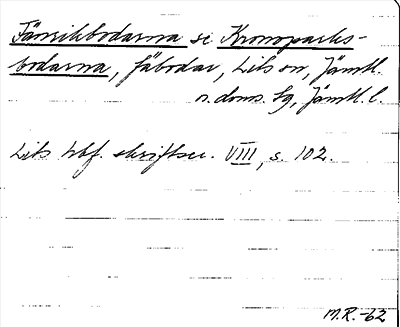 Tännikbodarna se Kronoparks-
bodarna, fäbodar, Lits sn, Jämtl.
n. doms. sg, Jämtl. l.
Lits hbf. skriftser. VIII, s. 102.
M.R.-62